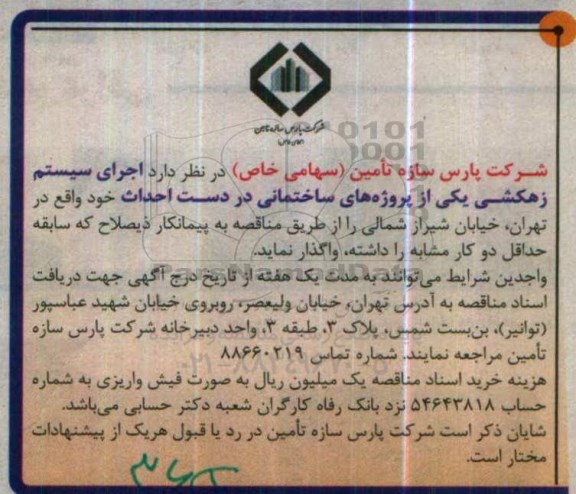 شرکت پارس سازه تامین
(سهامی خاص)
شرکت پارس سازه تأمین (سهامی خاص) در نظر دارد اجرای سیستم
زهکشی یکی از پروژه‌های ساختمانی در دست احداث خود واقع در
تهران، خیابان شیراز شمالی را از طریق مناقصه به پیمانکار ذیصلاح که سابقه
حداقل دو کار مشابه را داشته، واگذار نماید.
واجدین شرایط می‌توانند به مدت یک هفته از تاریخ درج آگهی جهت دریافت
اسناد مناقصه به آدرس تهران، خیابان ولیعصر، روبروی خیابان شهید عباسپور
(توانیر)، بن‌بست شمس، پلاک ۳، طبقه ۳، واحد دبیرخانه شرکت پارس سازه
تأمین مراجعه نمایند. شماره تماس ۸۸۶۶۰۲۱۹
هزینه خرید اسناد مناقصه یک میلیون ریال به صورت فیش واریزی به شماره
حساب ۵۴۶۴۳۸۱۸ نزد بانک رفاه کارگران شعبه دکتر حسابی می‌باشد.
شایان ذکر است شرکت پارس سازه تأمین در رد یا قبول هریک از پیشنهادات
مختار است.